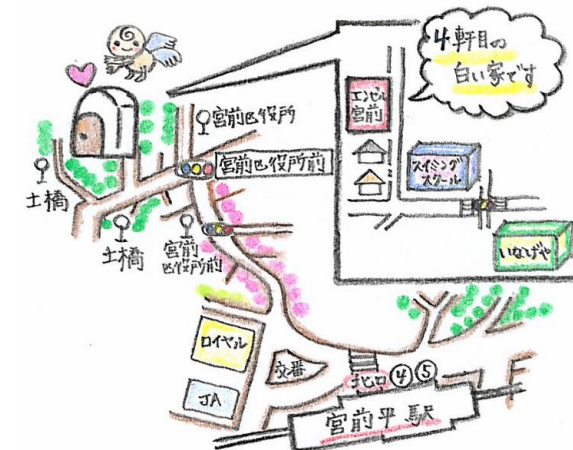 4軒目の
白い家です
エンゼル
宮前
スイミング
スクール
いなげや
宮前区役所
宮前区役所前
土橋
土橋
宮前
区役所前
ロイヤル
JA
交番
北口
④⑤
宮前平駅